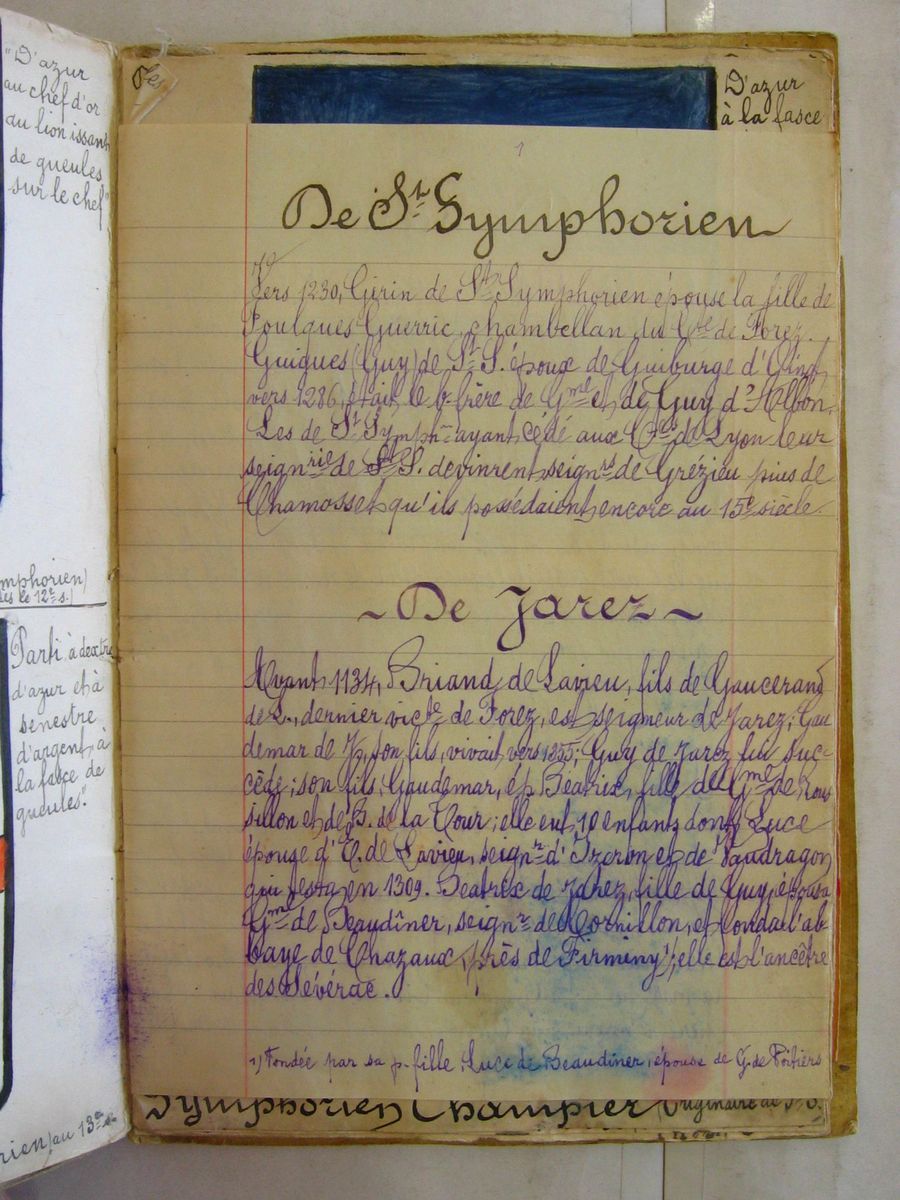 "D'azur
au chef d'or
au lion issant
de gueules
sur le chef"
mphorien)
dès le 12e s.)
Parti à dextre
d'azur et à
senestre
d'argent, à
la fasce de
gueules".
rien) au 13e s.
D'azur
à la fasce
1
De St Symphorien
Vers 1230, Girin de St Symphorien épouse la fille de
Foulques Guerric, chambellan du Cte de Forez.
Guigues (Guy) de St S. époux de Guiburge d'Oingt
vers 1286, était le b-frère de Gme et de Guy d'Albon.
Les de St Symphn ayant cédé aux Ctes de Lyon leur
seignrie de St S. devinrent seignrs de Grézieu puis de
Chamosset qu'ils possédaient encore au 15e siècle.
~ De Jarez ~
Avant 1134, Briand de Lavieu, fils de Gaucerand
de L., dernier victe de Forez, est seigneur de Jarez; Gau
demar de Jz, son fils, vivait vers; Guy de Jarez lui suc-
cède; son fils, Gaudemar, ép. Béatrix, fille de Gme de Rous
sillon et de B. de la Tour; elle eut 10 enfants dont Luce
épouse d'de Lavieu, seignr d'Izeron et de Vaudragon
qui testa en 1309. Béatrix de Jarez, fille de Guy, épousa
Gme de Beaudîner, seignr de Cornillon, et fonda l'ab-
baye de Chazaux, près de Firminy 1); elle est l'ancêtre
des Sévérac.
1) Fondée par sa p-fille, Luce de Beaudîner, épouse de G. de Poitiers
Symphorien Champier (Originaire de St S.